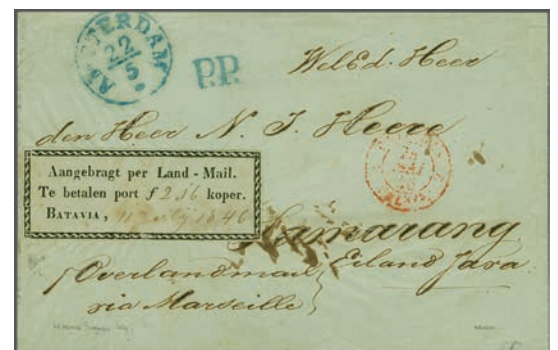 AMSTERDAM
22
5
P.P.
WelEd. Heer
den Heer N. J. Heere
Aangebragt per Land - Mail.
Te betalen port ƒ 2.16 koper.
BATAVIA, 1846
Samarang
Eiland Java
Overlandmail
via Marseille